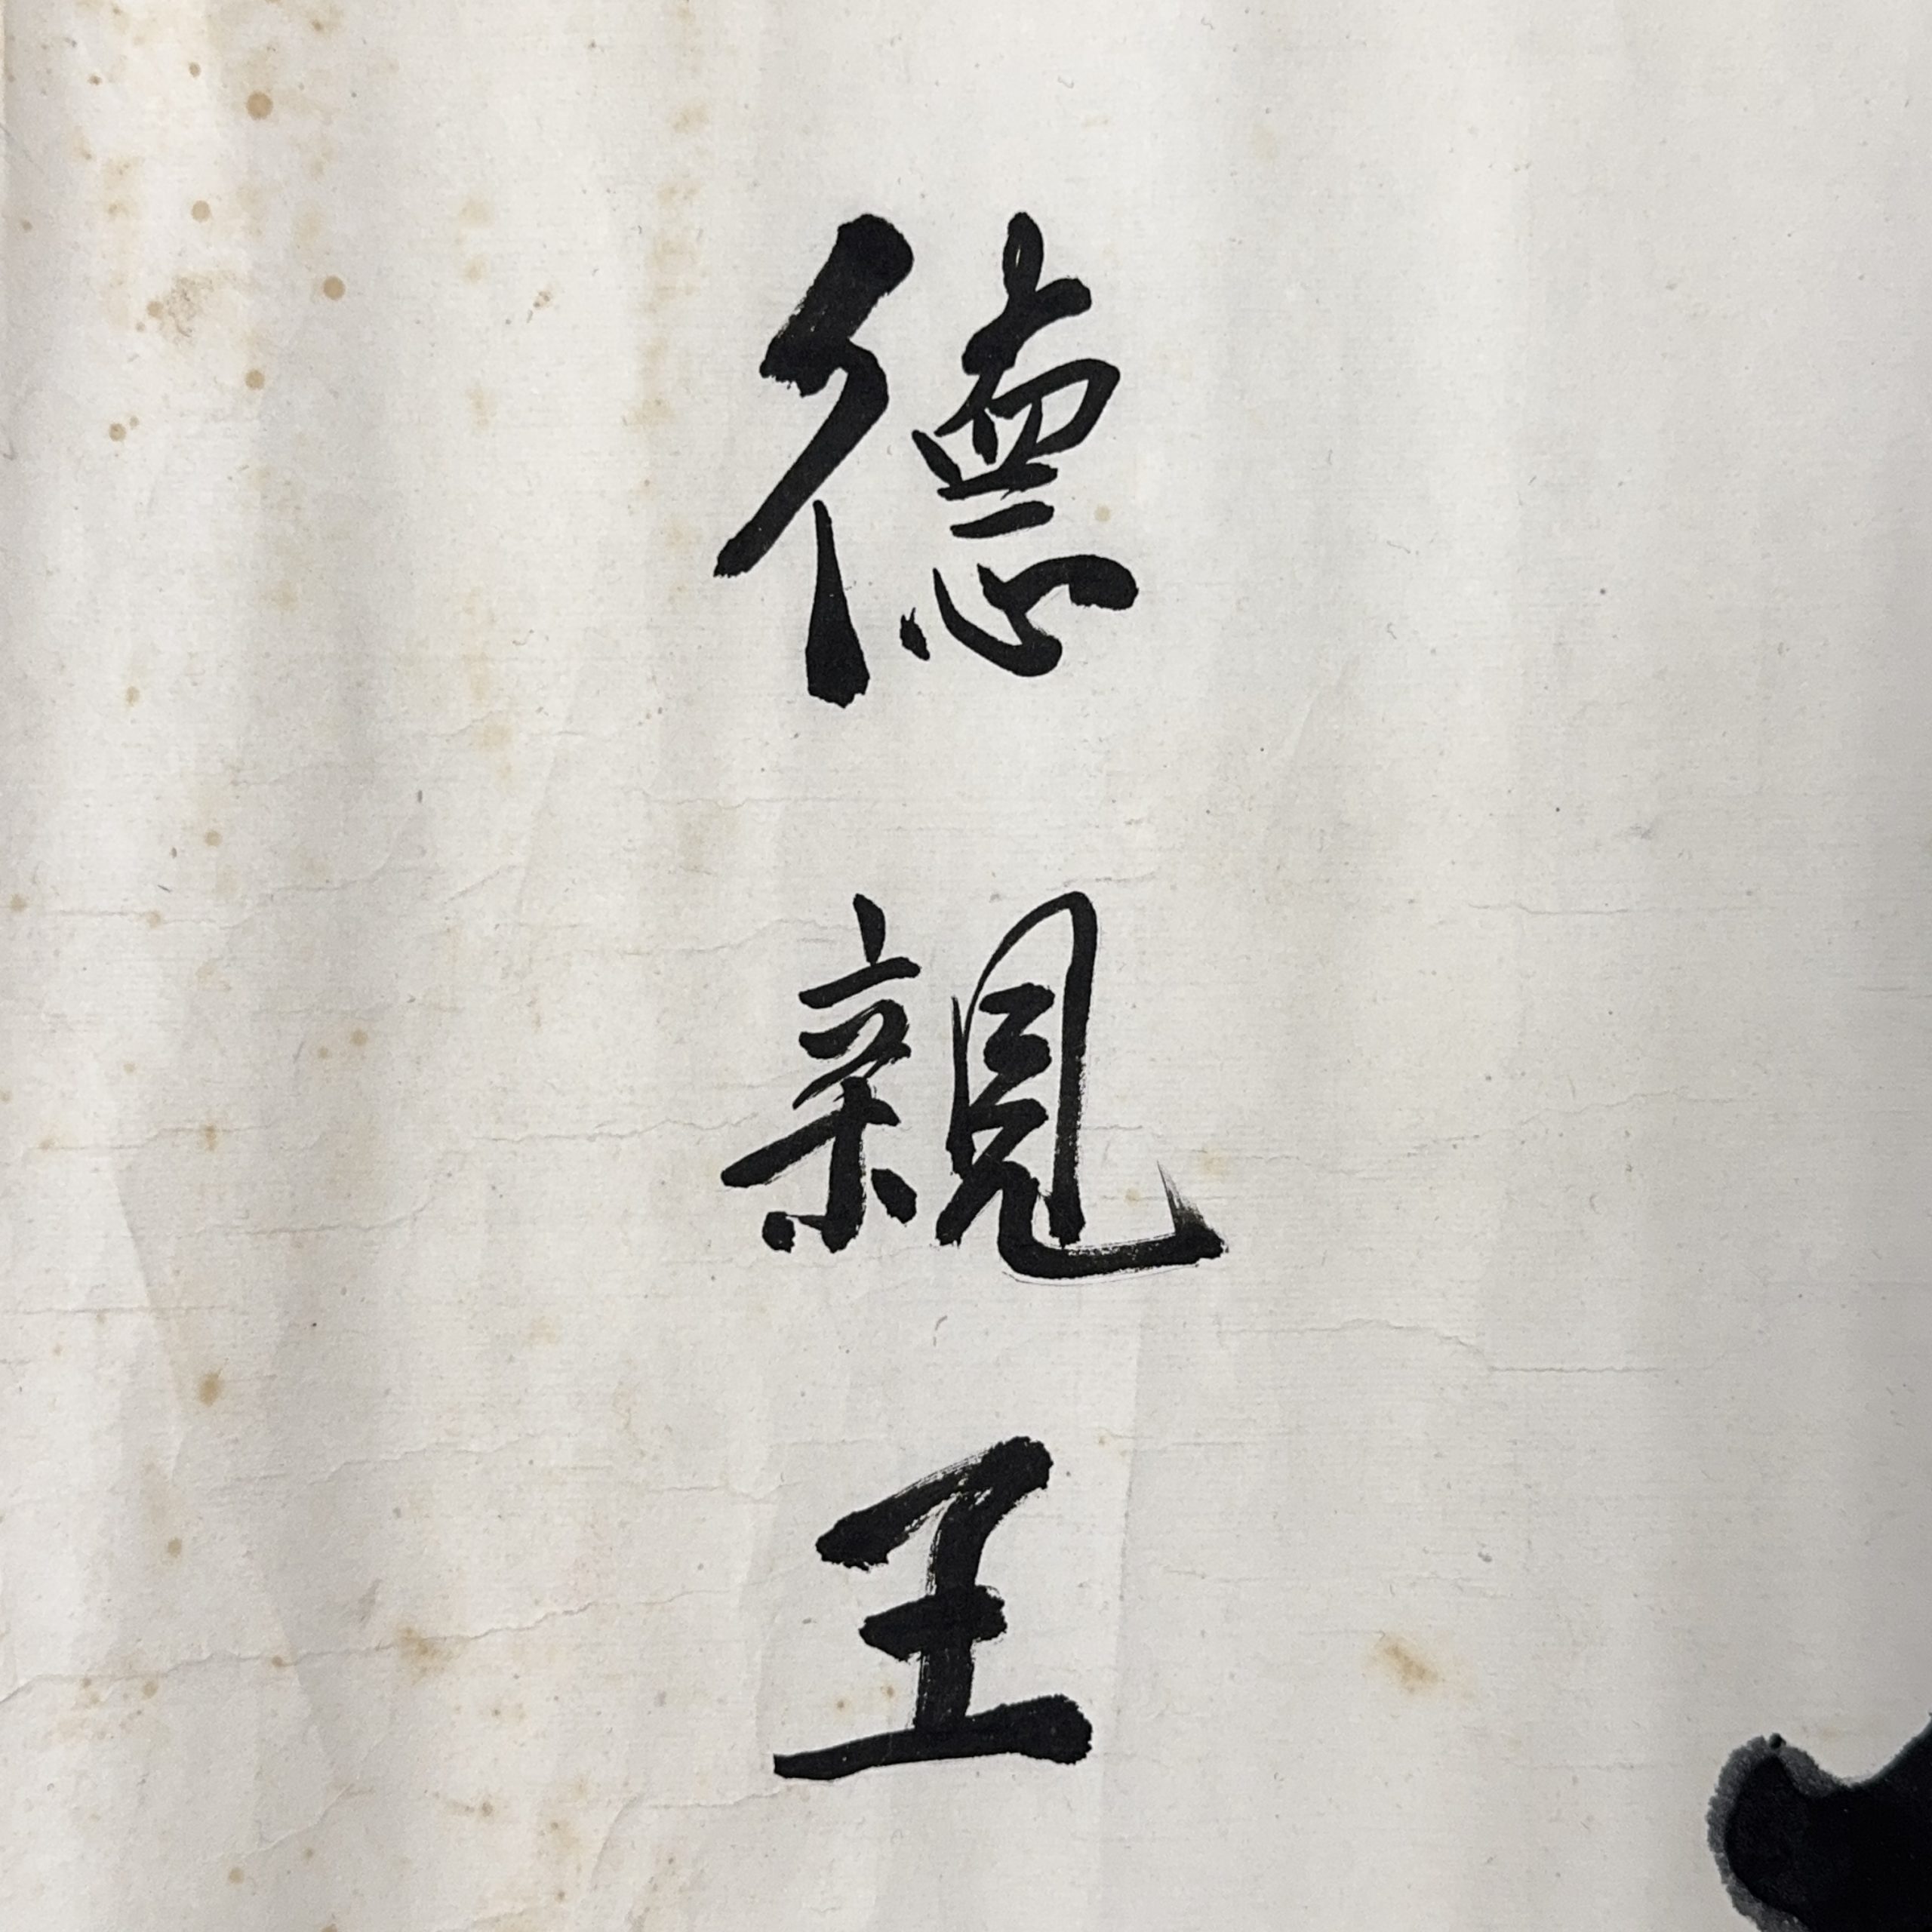 德親王